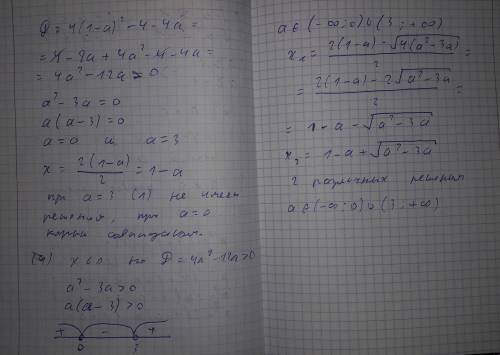 D = 4(1-a)² - 4 - 4a =
= 4 - 8a + 4a² - 4 - 4a =
= 4a² - 12a > 0
a² - 3a = 0
a(a-3) = 0
a = 0 и a = 3
x = 2(1-a)/2 = 1-a
при a=3 (1) не имеет
решения, при a=0
корни совпадают.
x<0 но D = 4a² - 12a > 0
a² - 3a > 0
a(a-3) > 0
+ - +
0 3
a ∈ (-∞; 0) ∪ (3; +∞)
x₁ = 2(1-a) - √4(a²-3a) / 2 =
= 2(1-a) - 2√a²-3a / 2 =
= 1 - a - √a²-3a
x₂ = 1 - a + √a²-3a
2 различных решения
a ∈ (-∞; 0) ∪ (3; +∞)